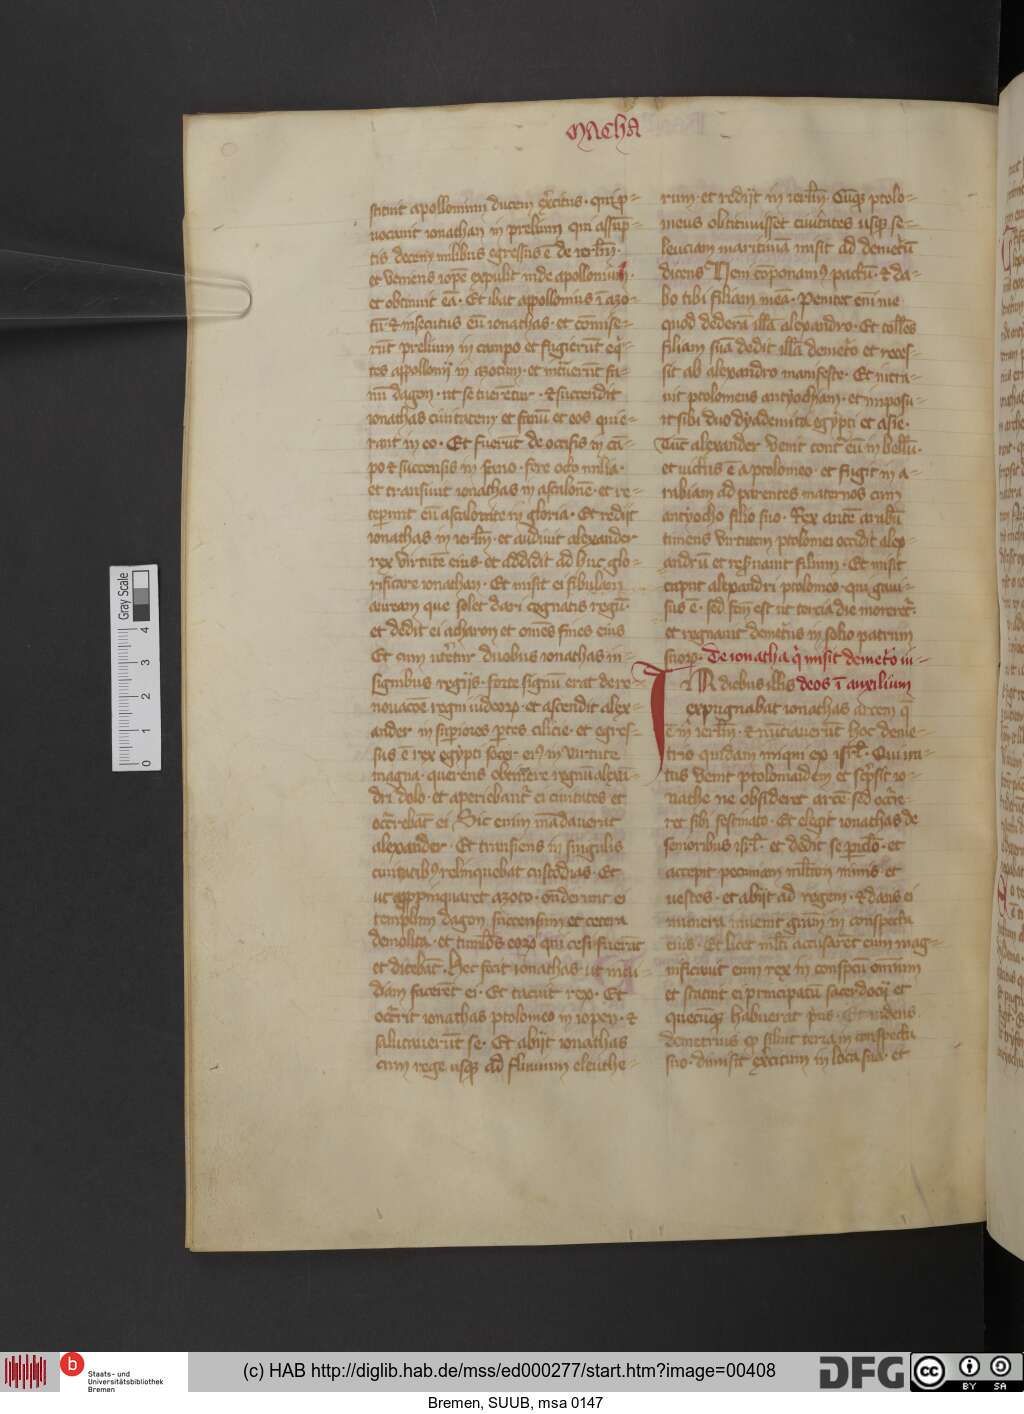 Macha
stituit apollonium ducem exrcitus · qui p̱-
uocauit ionathan in prelium qui assūp-
tis decem milibus egressus ē de ierl̄m ·
et veniens iope expulit inde apollonium ·
et obtinuit eā · Et ibat appollonius ī azo-
tū ⁊ insecutus eū ionathas · et cōmise-
rūt prelium in campo et fugierūt eq̇-
tes appollonij in azotum · et intrauerūt fa-
nū dagon · ut se tuerētur · ⁊ succendit
ionathas ciuitatem et fanū et eos qui e-
rant in eo · Et fuerūt de occisis in cā-
po ⁊ succensis in fano · fere octo milia ·
et transiuit ionathas in ascalonē · et re-
ceperunt eū ascalonite in gloria · Et redijt
ionathas in ierl̄m · et audiuit alexander
rex virtutē eius · et addidit ad huc glo-
rificare ionathan · Et misit ei fibulam
auream que solet dari cognatis regū ·
et dedit ei acharon et om̄es fines eius
Et cum uteretur duobus ionathas in-
signibus regijs · forte signū erat de re-
nouacōe regni iudeoꝝ · et ascendit alex-
ander in supiores p̱tes cilicie · et egres-
sus ē rex egypti socer eiꝰ in virtute
magna · querens obtinere regnū alexā-
dri dolo · et aperiebant̄ ei ciuitates et
occ̄rebāt ei / Sic enim mādauerat
alexander · Et transiens in singulis
ciuitatibꝰ relinquebat custodias · Et
ut app̱inquaret azoto · on̄derunt ei
templum dagon succensum et cetera
demolita · et tumul̄os eoꝝ qui cesi fuerāt
et dicebāt · Hec fecit ionathas · ut inui-
diam facerēt ei · Et tacuit rex · Et
occ̄rrit ionathas ptolomeo in iopen · ⁊
salutauerūt se · Et abijt ionathas
cum rege usqꝫ ad fluuium eleuthe-
rum · et redijt in ierl̄m · Cūqꝫ ptolo-
meus obtinuisset ciuitates usqꝫ se-
leuciam maritimā misit ad demetriū
dicens Veni cōponamꝰ pactū · ⁊ da-
bo tibi filiam meā · Penitet enī me
quod dederā illā alexandro · Et tollēs
filiam suā dedit illā demetrio et reces-
sit ab alexandro manifeste · Et intra-
uit ptolomeus antyochiam · et imposu-
it sibi duo dyademata egypti et asie ·
Tūc alexander venit contra eū in bellū ·
et uictus ē a ptolomeo · et fugit in a-
rabiam ad parentes maternos cum
antyocho filio suo · Rex autē arabū
timens virtutem ptolomei occidit alex-
andrū et res̄uauit filium · Et misit
caput alexandri ptolomeo · qui gaui-
sus ē · sed scm̄ est ut tercia die moreret̄ ·
et regnauit demetrius in solio patrum
suoꝝ · De ionatha q̇ misit demetrio iu-
IN diebus illis deos ī auxilium
expugnabat ionathas arcem q̄
ē in ierl̄m · ⁊ nūciauerūt hoc deme-
trio quidam iniqui ex isrl̄ · Qui ira-
tus venit ptolomaidem et scp̱sit io-
nathe ne obsideret arcē sed occr̄e-
ret sibi festinato · Et elegit ionathas de
senioribus isrl̄ · et dedit se p̱iclo · et
accepit pecuniam ml̄tam nimis et
uestes · et abijt ad regem · ⁊ dans ei
munera inuenit grām in conspectu
eius · Et licet ml̄ti accusarēt eum mag-
nificauit eum rex in conspcū om̄ium
et statuit ei principatū sacerdocij et
quecūqꝫ habuerat p̱us · Et videns
demetrius ꝙ siluit terra in conspectu
suo · dimisit exrcitum in loca sua · et
Gray Scale
0 1 2 3 4
b
Staats- und
Universitätsbibliothek
Bremen
(c) HAB http://diglib.hab.de/mss/ed000277/start.htm?image=00408
DFG
cc
BY SA
Bremen, SUUB, msa 0147